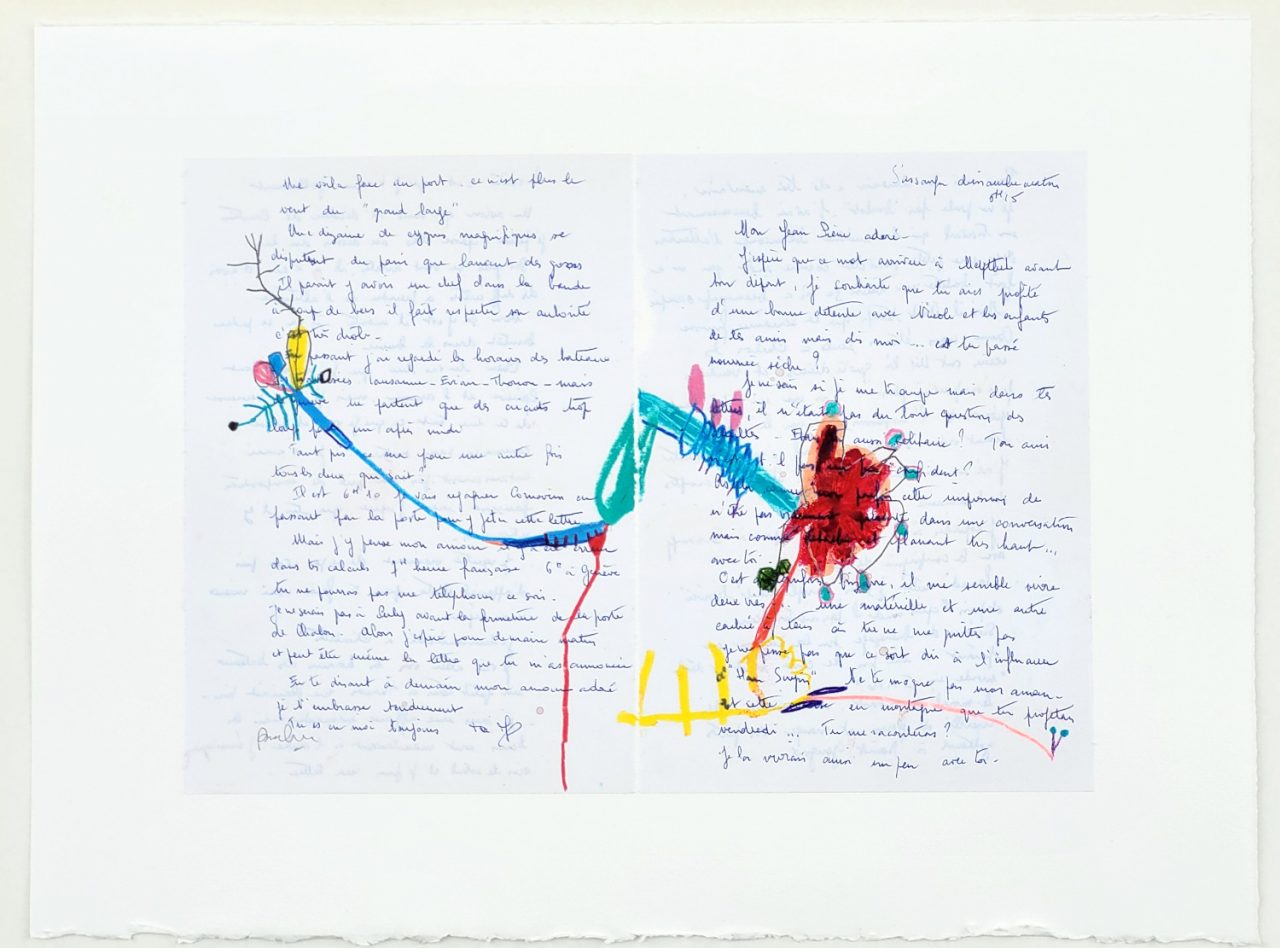 Me voilà face au port. ce n'est plus le
vent du "grand large"
Une dizaine de cygnes magnifiques se
disputent du pain que lancent des gosses
Il parait y avoir un chef dans la bande
à coup de becs il fait respecter son autorité
c'est très drôle-
En passant j'ai regardé les horaires des bateaux
Lausanne - Evian - Thonon - mais
Genève ne partent que des circuits trop
longs pour un après midi
Tant pis ce sera pour une autre fois
tous les deux qui sait?
Il est 6h10 je vais regagner Cornavin en
passant par la poste pour y jeter cette lettre
Mais j'y pense mon amour il y a une erreur
dans tes calculs 1h heure française 6h à Genève
tu ne pourras pas me téléphoner ce soir.
Je ne serais pas à avant la fermeture de la poste
de Chalon. Alors j'espère pour demain matin
et peut être même la lettre que tu m'as annoncée
En te disant à demain mon amour adoré
je t'embrasse tendrement
Tu es en moi toujours ta
dimanche matin
9h15
Mon Jean Pierre adoré-
J'espère que ce mot arrivera à avant
ton départ, je souhaite que tu aies profité
d'une bonne détente avec Nicole et les enfants
de tes amis mais dis moi ... est tu passé
nourrice sèche?
Je ne sais si je me trompe mais dans tes
lettres, il n'était pas du tout question des
aussi solitaire? Ton ami
n'est il pas un peu confident?
cette impression de
n'être pas vraiment présente dans une conversation
mais comme détachée et planant très haut...
avec toi
C'est quelquefois bizarre, il me semble vivre
deux vies... une matérielle et une autre
cachée à tous où tu ne me quittes pas
je ne pense pas que ce soit dû à l'influence
d' "Han Suyin" Ne te moque pas mon amour-
et cette en montagne que tu projetais
vendredi ... Tu me raconteras?
Je la vivrais ainsi un peu avec toi-